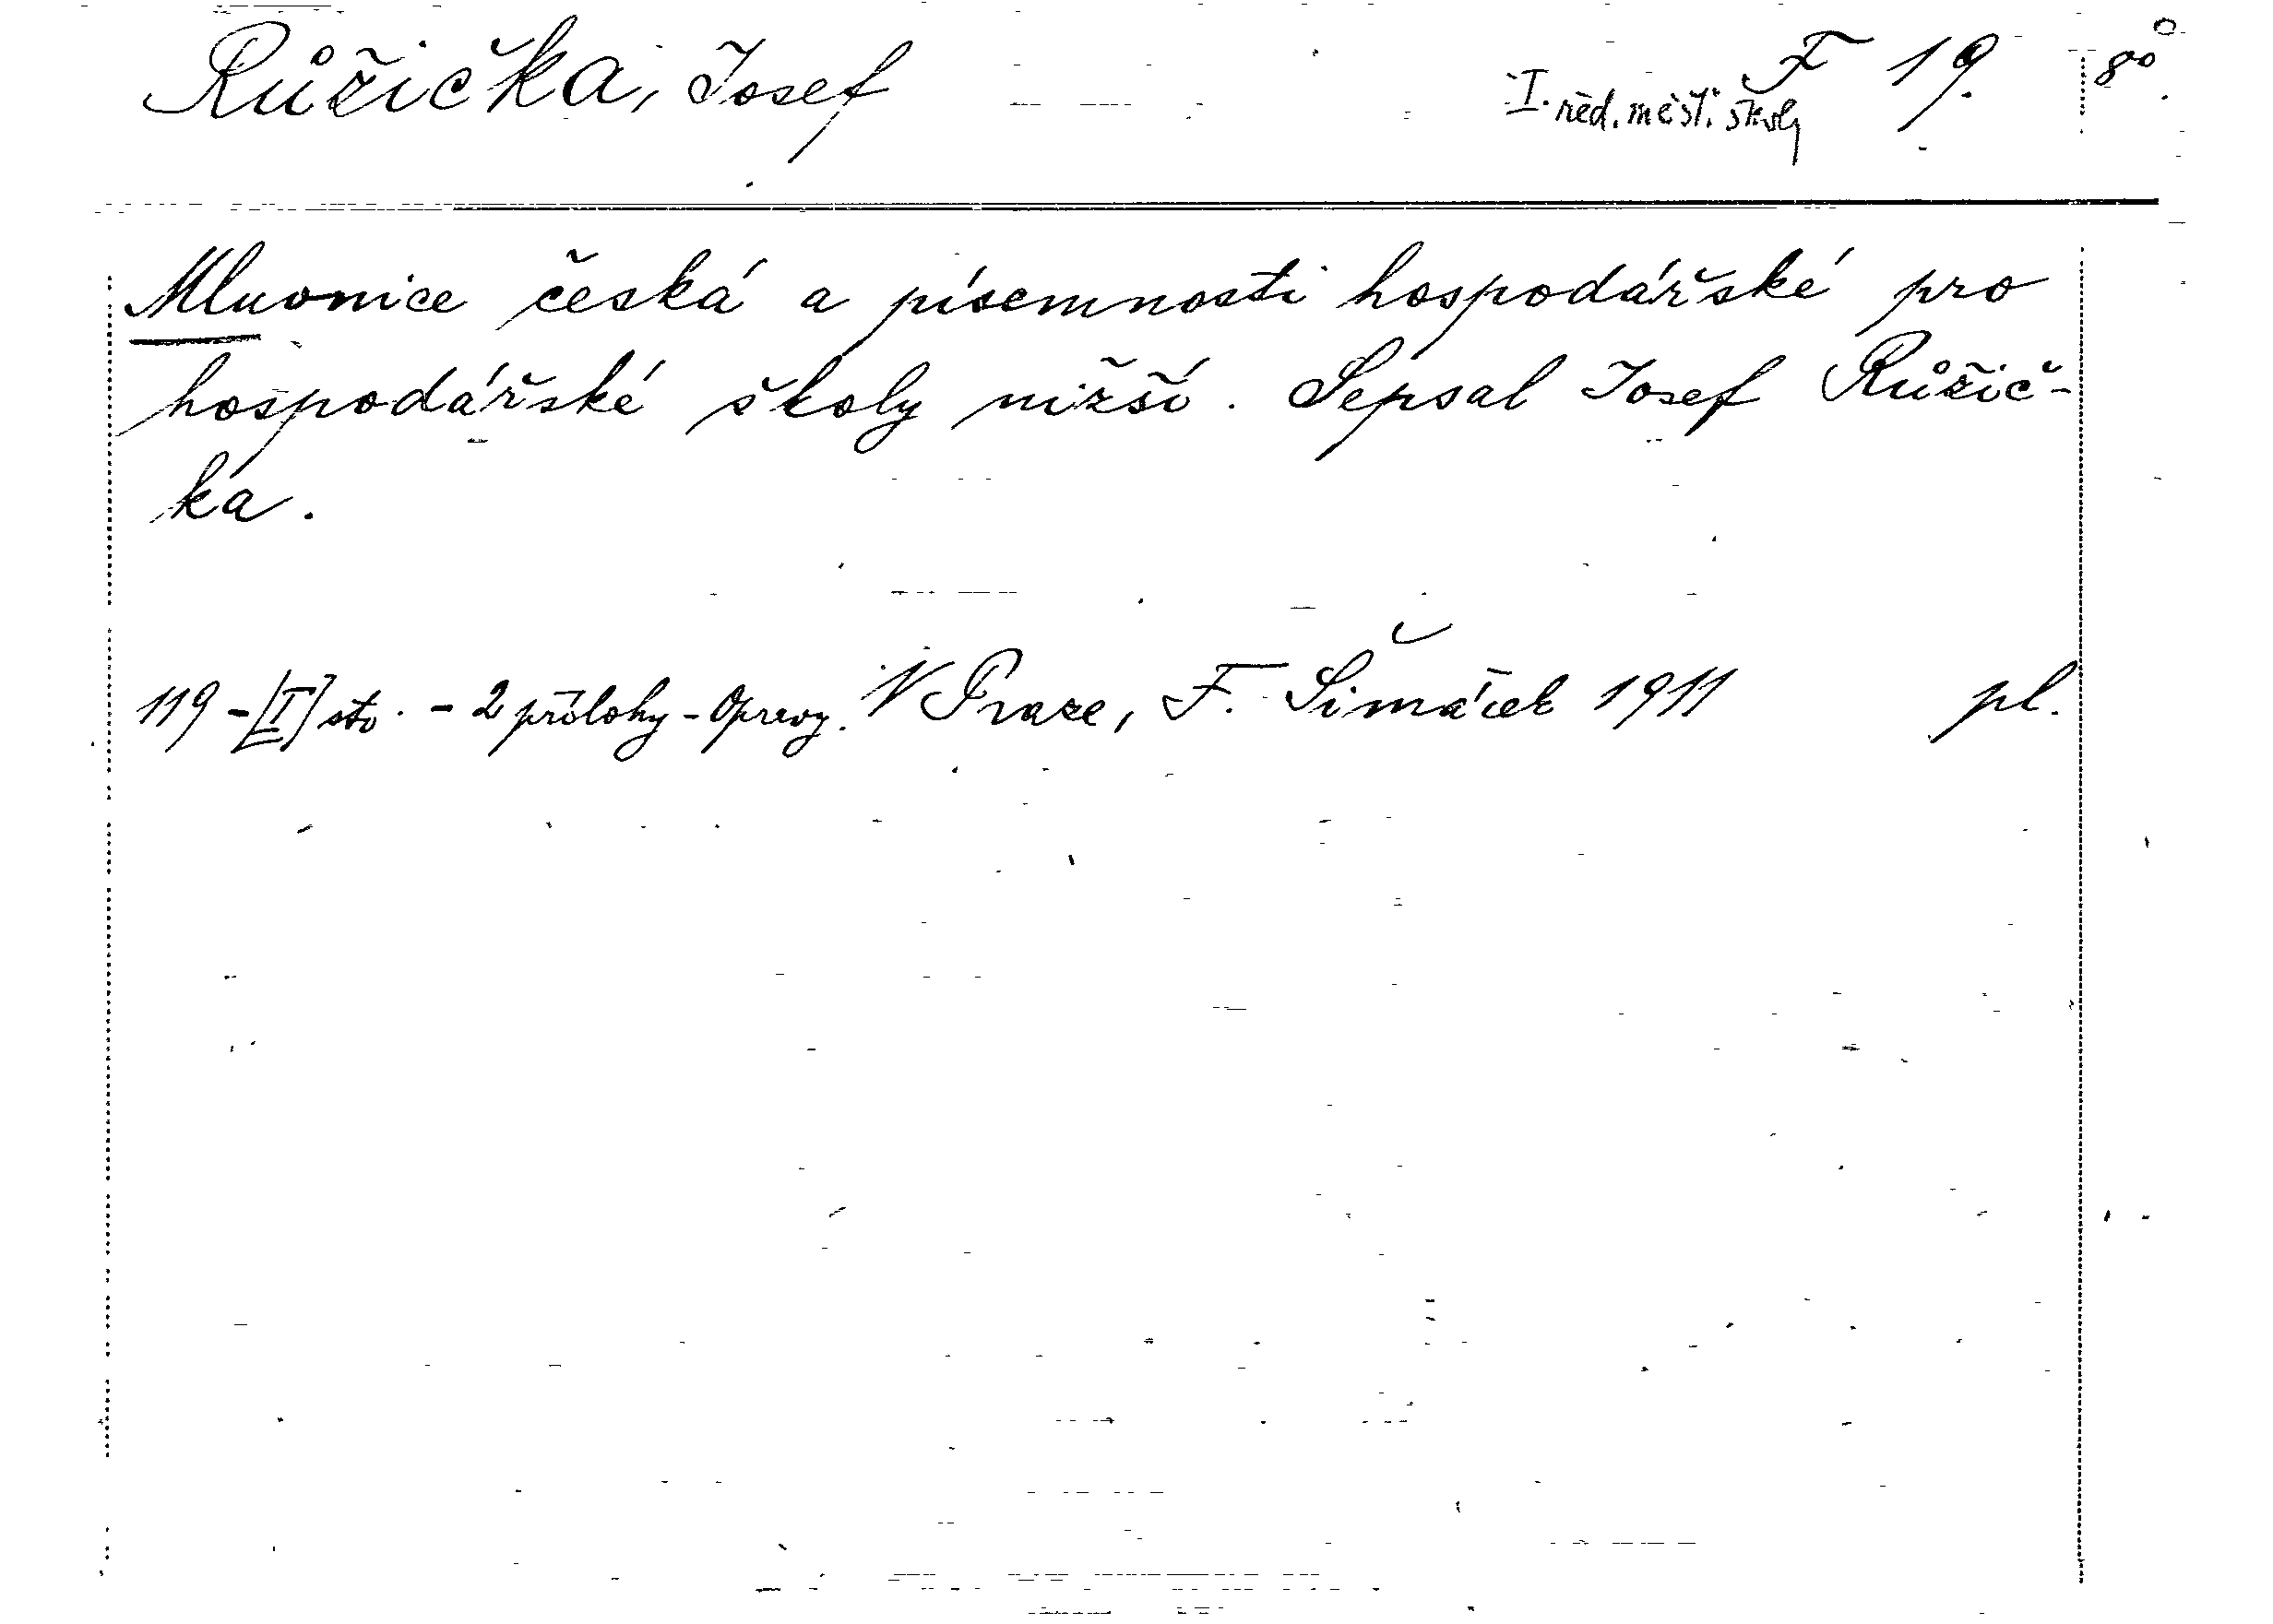 Růžička, Josef
F 19. 8°
I. řed. měšť. školy
Mluvnice česká a písemnosti hospodářské pro
hospodářské školy nižší. Sepsal Josef Růžič-
ka.
119 - [I] str. - 2 přílohy - Opravy. V Praze, F. Šimáček 1911 pl.